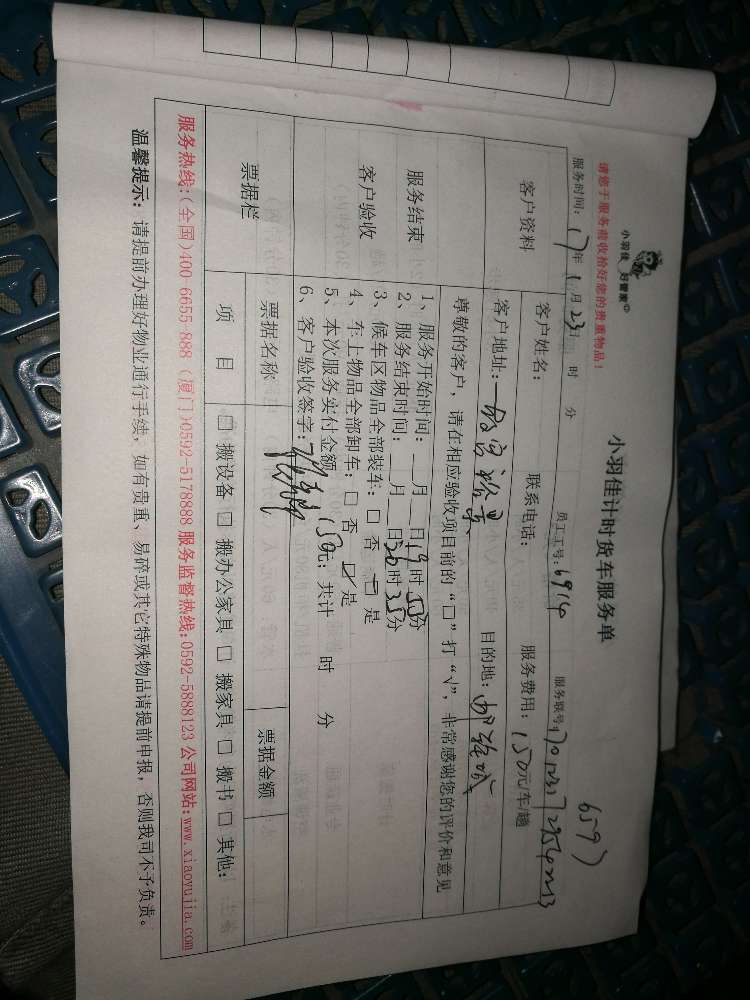 小羽佳 好管家
请您于服务前收拾好您的贵重物品！
小羽佳计时货车服务单
6597
服务时间：17年1月23日 时 分
员工工号：6914
服务联号：
客户资料
客户姓名：
联系电话：
服务费用：150元/车/趟
客户地址：
目的地：
服务结束
客户验收
尊敬的客户，请在相应验收项目前的“□”打“√”，非常感谢您的评价和意见
1、服务开始时间：__月__日19时 分
2、服务结束时间：__月__日20时35分
3、候车区物品全部装车：□ 否 □ 是
4、车上物品全部卸车：□ 否 ☑ 是
5、本次服务实付金额 150元；共计 时 分
6、客户验收签字：
票据栏
票据名称
票据金额
项 目 □ 搬设备 □ 搬办公家具 □ 搬家具 □ 搬书 □ 其他：
服务热线:(全国)400-6655-888 (厦门)0592-5178888 服务监督热线:0592-5888123 公司网站:www.xiaoyujia.com
温馨提示：请提前办理好物业通行手续，如有贵重、易碎或其它特殊物品请提前申报，否则我司不予负责。